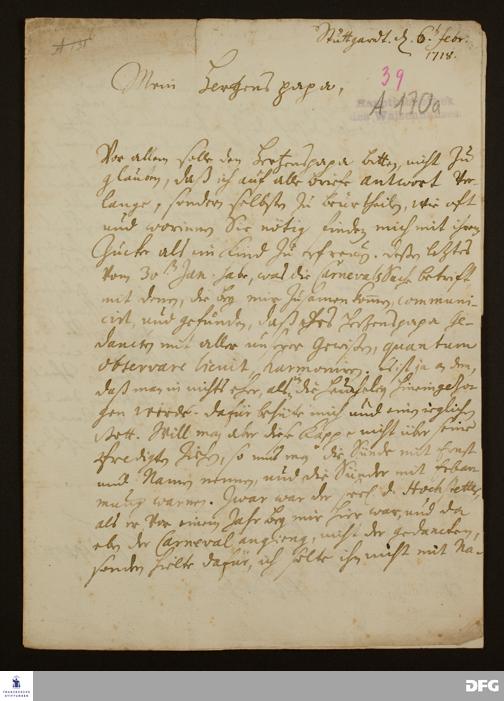 A 131
Stuttgardt. d. 6t febr.
1718.
39
A 170a
Hauptbibliothek
des Waisenhauses
Mein Hertzens papa,
Vor allem solle den Hertzenspapa bitten, nicht zu
glauben, daß ich auf alle briefe antwort ver-
lange, sondern selbsten zu beurtheilen, wie oft
und worinnen Sie nötig finden mich mit ihrer
Zucht als ein Kind zu erfreuen. Dessen letztes
vom 30t Jan. habe, was die Carnevals Sache betrifft
mit denen, die bey mir zusamen komen, communi-
cirt, und gefunden, daß meines Hertzenspapa ge-
dancken mit aller unserer Gewissen, quantum
observare licuit, harmoniren. Es ist ja an dem,
daß man in nichts eher, als in die heucheley hineingezo-
gen werde. dafür behüte mich und einen ieglichen
Gott. Will man aber diese Kappe nicht über seine
predigten ziehen, so muß man die Sünde mit Ernst
und Namen nennen, und die Sünder mit erbar-
mung warnen. Zwar war der prof. d. Hochstetter,
als er vor einem Jahr bey mir hier war, und da
eben der Carneval angieng, nicht der gedancken,
sondern hielte dafür, ich solte ihn nicht mit Na-
FRANCKESCHE
STIFTUNGEN
DFG